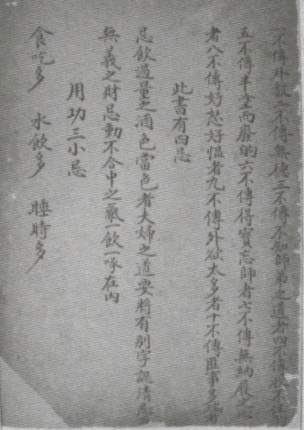 不傳外教二不傳無德三不傳不知師弟之道者四不傳收不住
五不傳半途而廢的六不傳得寶忘師者七不傳無納履之心
者八不傳好怒好愠者九不傳外欲太多者十不傳匪事多端
此書有四忌
忌飲過量之酒色當色者夫婦之道要將有別字認清忌
無義之財忌動不合中之氣一飲一啄在內
用功三小忌
食吃多 水飲多 睡時多